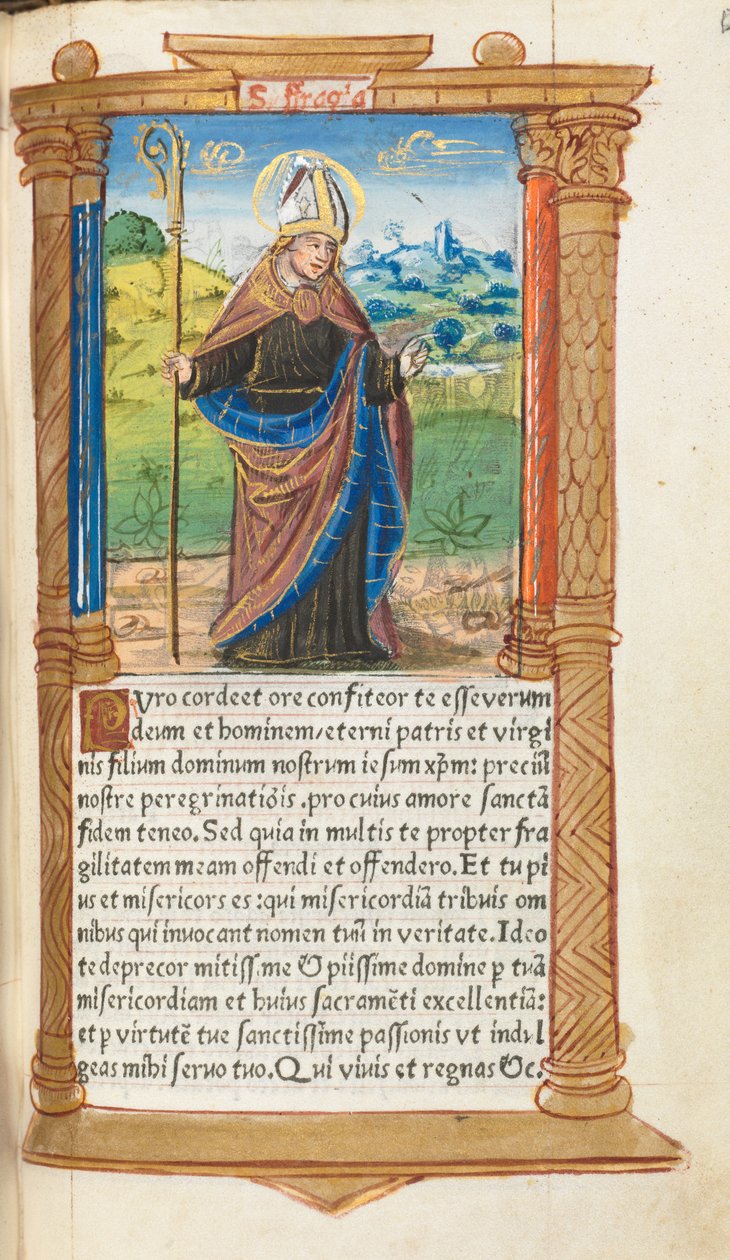 Suffragia
Puro corde et ore confiteor te esse verum
deum et hominem/eterni patris et virgi
nis filium dominum nostrum iesum xp̄m: preciū
nostre peregrinatiōis .pro cuius amore sanctā
fidem teneo. Sed quia in multis te propter fra
gilitatem meam offendi et offendero. Et tu pi
us et misericors es :qui misericordiā tribuis om
nibus qui invocant nomen tuū in veritate. Ideo
te deprecor mitissime & piissime domine ꝑ tuā
misericordiam et huius sacramēti excellentiā:
et ꝑ virtutē tue sanctissime passionis vt indul
geas mihi servo tuo. Qui vivis et regnas &c.